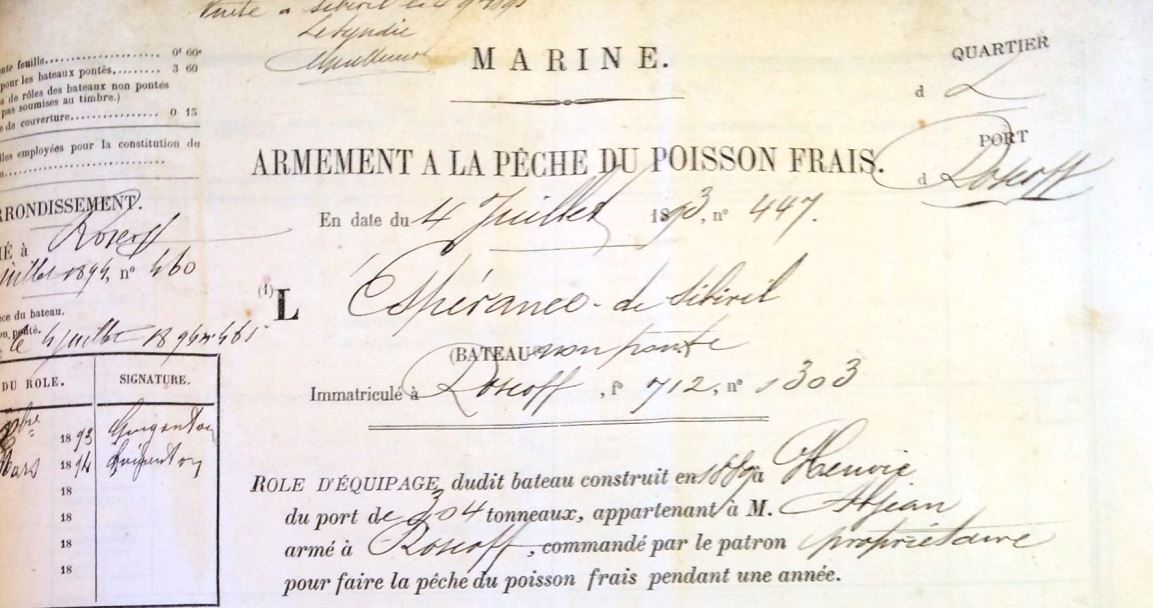 Visité à Sibiril le 4 9bre 1893
Le Syndic
MARINE.
QUARTIER
d
PORT
d Roscoff
nte feuille 0f 60c
pour les bateaux pontés 3 60
s de rôles des bateaux non pontés
pas soumises au timbre.)
e de couverture 0 15
lles employées pour la constitution du
ARMEMENT A LA PÊCHE DU POISSON FRAIS.
En date du 4 Juillet 1893, n° 447.
(1) L'Espérance - de Sibiril
(BATEAU non ponté
Immatriculé à Roscoff, f° 712, n° 1303
RRONDISSEMENT.
É à Roscoff
uillet 1894, n° 460
ce du bateau.
on ponté.
le 4 juillet 1894 n° 461
DU ROLE. SIGNATURE.
bre 1893 Guiganton
Mars 1894 Guiganton
18
18
18
18
ROLE D'ÉQUIPAGE, dudit bateau construit en 1889 à Henvic
du port de 3 04 tonneaux, appartenant à M.
armé à Roscoff, commandé par le patron propriétaire
pour faire la pêche du poisson frais pendant une année.